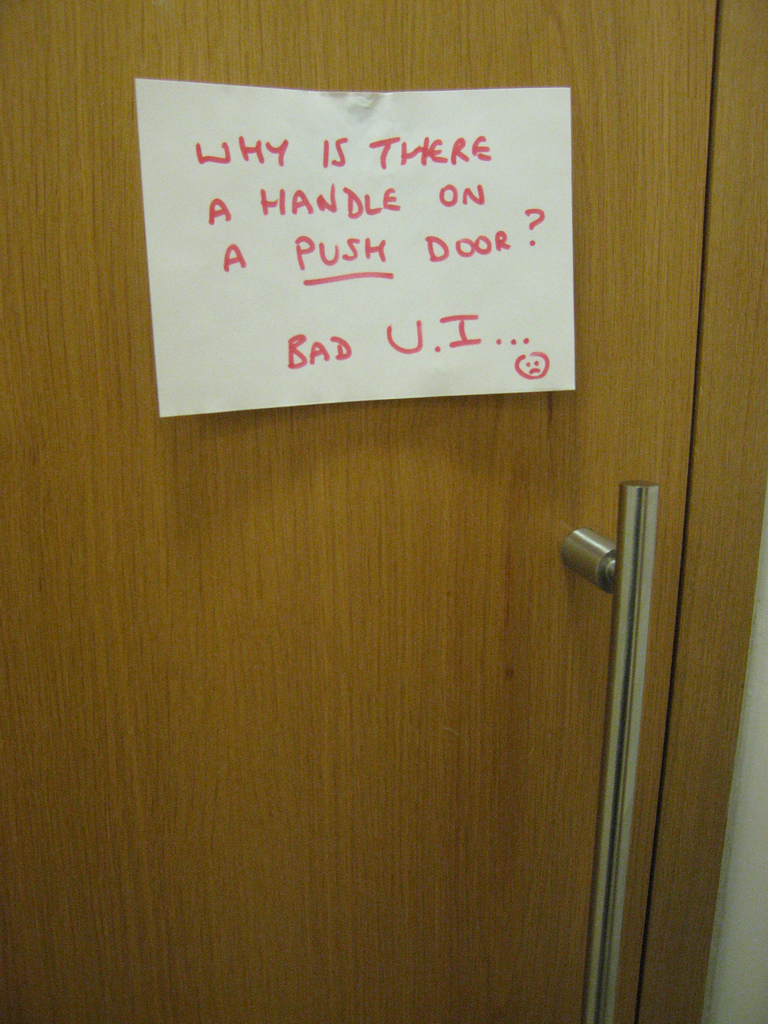 WHY IS THERE
A HANDLE ON
A PUSH DOOR?
BAD U.I...